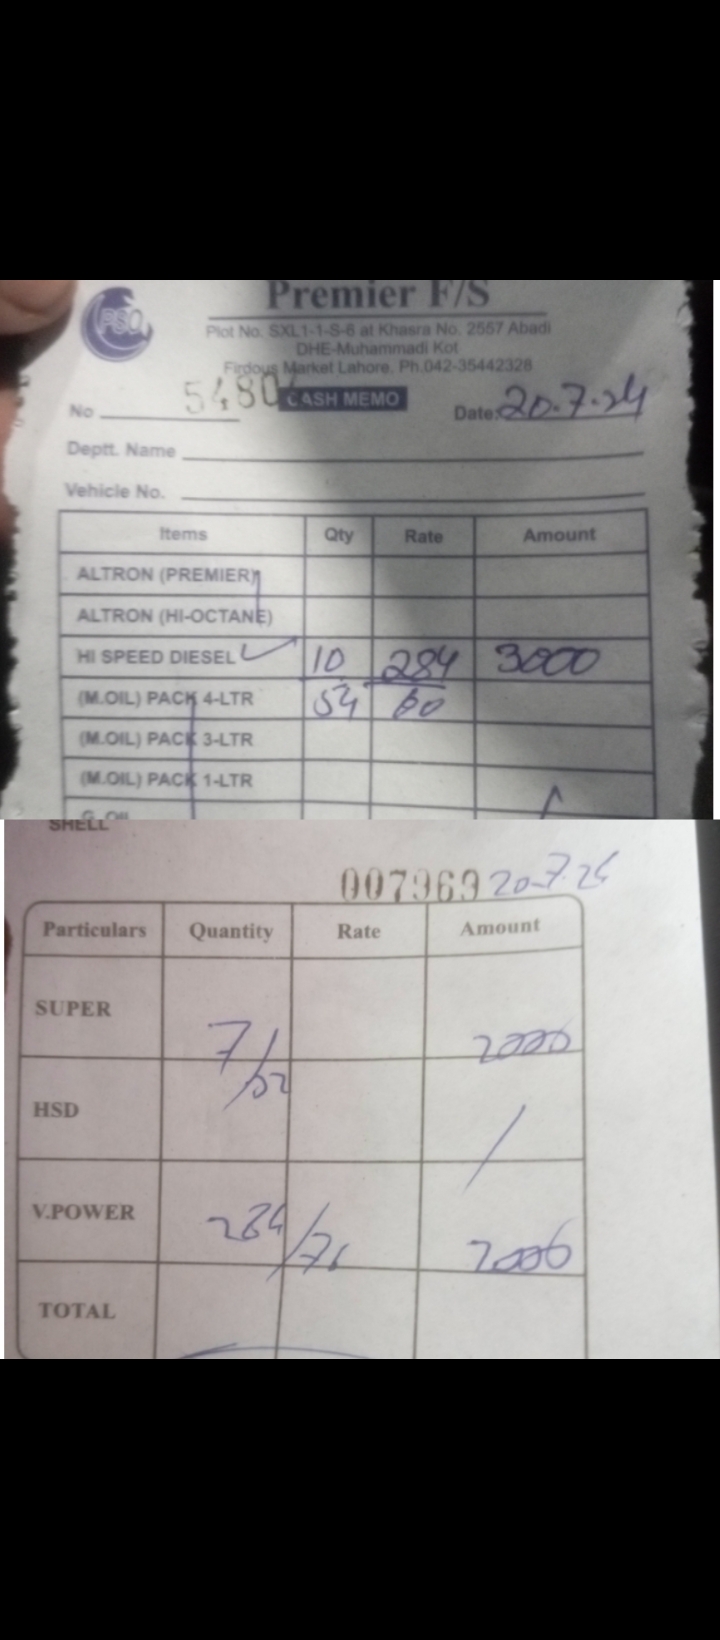 Premier F/S
PSO
Plot No. SXL1-1-S-6 at Khasra No. 2557 Abadi
DHE-Muhammadi Kot
Firdous Market Lahore, Ph.042-35442328
No 5480 CASH MEMO Date: 20.7.24
Deptt. Name
Vehicle No.
Items Qty Rate Amount
ALTRON (PREMIER)
ALTRON (HI-OCTANE)
HI SPEED DIESEL 10 284 3000
(M.OIL) PACK 4-LTR 54 60
(M.OIL) PACK 3-LTR
(M.OIL) PACK 1-LTR
G.OIL
SHELL
007969 20-7.24
Particulars Quantity Rate Amount
SUPER 7/ 2000
HSD 02 /
V.POWER 284/76 2000
TOTAL